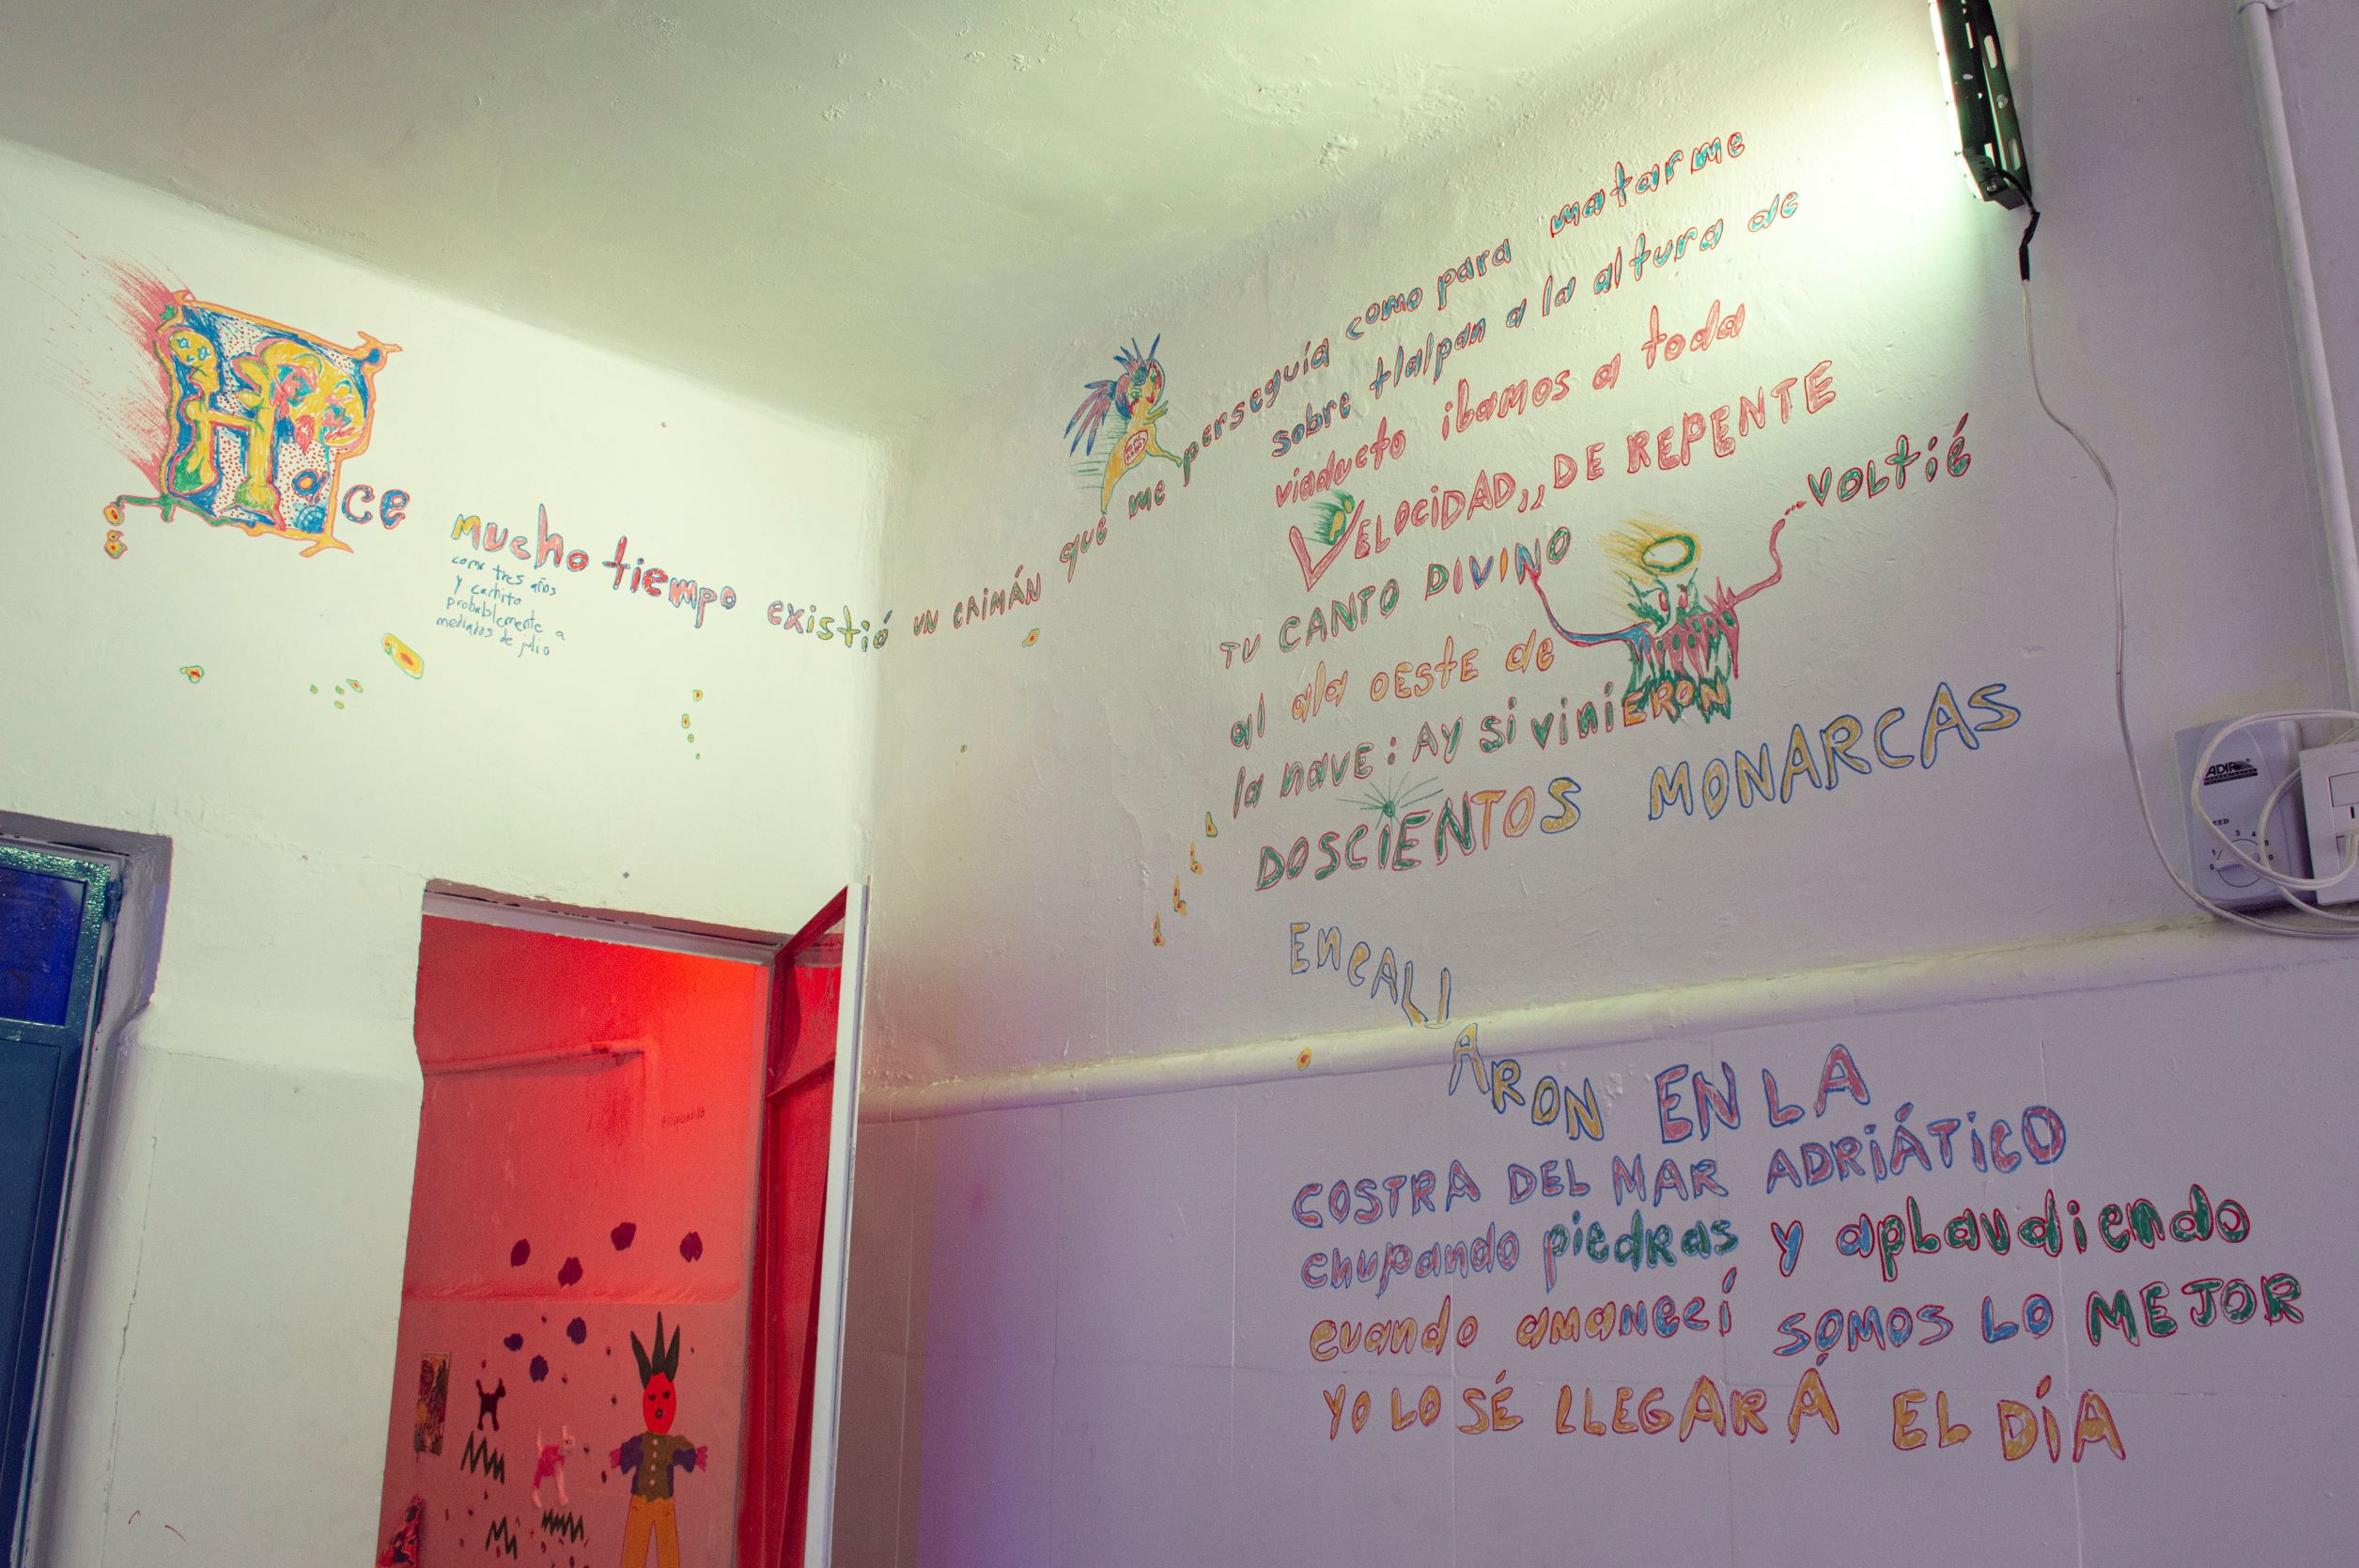 Hace mucho tiempo existió UN CAIMÁN que me perseguía como para matarme
como tres años
y cachito
probablemente a
mediados de julio
sobre tlalpan a la altura de
viaducto ibamos a toda
VELOCIDAD,, DE REPENTE
TU CANTO DIVINO ...VOLTIÉ
al ala OESTE de
la nave: Ay si viniERON
DOSCIENTOS MONARCAS
ENCALLARON EN LA
COSTRA DEL MAR ADRIÁTICO
chupando piedras y aplaudiendo
cuando amanecí SOMOS LO MEJOR
YO LO SÉ LLEGARÁ EL DÍA